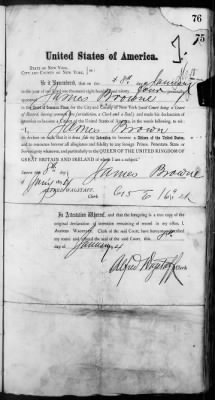 76
75
United States of America.
STATE OF NEW YORK,
CITY AND COUNTY OF NEW YORK,
Be it Remembered, that on the 8th January
in the year of our Lord one thousand eight hundred and ninety four
James Browne
in the Court of Common Pleas for the City and County of New York (said Court being a Court
of Record, having common law jurisdiction, a Clerk and a Seal) and made his declaration of
Intention to become a Citizen of the United States, in the words following, to wit:
I, James Brown
do declare on oath that it is bona fide my Intention to become a Citizen of the United States,
and to renounce forever all allegiance and fidelity to any foreign Prince, Potentate, State or
Sovereignty whatever, and particularly to the QUEEN OF THE UNITED KINGDOM OF
GREAT BRITAIN AND IRELAND of whom I am a subject.
Sworn this 8th
day of January
James Browne
ALFRED WAGSTAFF,
Clerk.
615 E 16
In Attestation Whereof, and that the foregoing is a true copy of the original
declaration of intention remaining of record in my office, I
ALFRED WAGSTAFF, Clerk of the said Court, have hereunto subscribed
my name and affixed the seal of the said Court, this 8th
day of January
Alfred Wagstaff Clerk